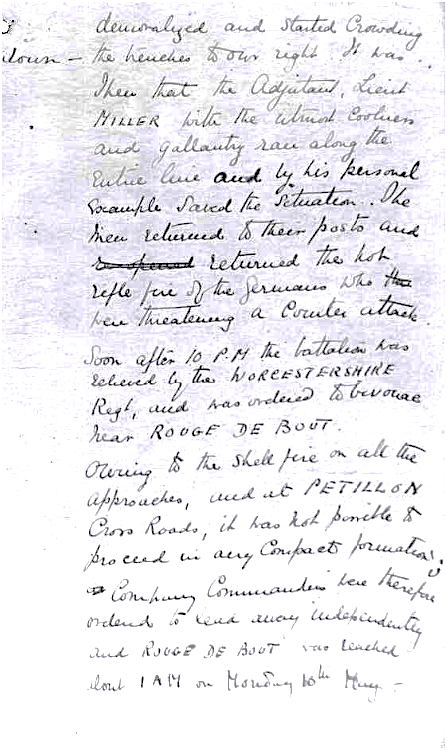 demoralized and started Crowding
down — the trenches to our right. It was
Then that the Adjutant, Lieut
MILLER with the utmost Coolness
and gallantry ran along the
Entire line and by his personal
Example Saved the Situation. The
Men returned to their posts and
re-opened returned the hot
rifle fire of the Germans who
were threatening a Counter attack
Soon after 10 P.M the battalion was
relieved by the WORCESTERSHIRE
Regt, and was ordered to bivouac
near ROUGE DE BOUT.
Owing to the Shell fire on all the
approaches, and at PETILLON
Cross Roads, it was not possible to
proceed in any Compact formation,
Company Commanders were therefore
ordered to lead away independently
and ROUGE DE BOUT was reached
about 1 AM on Monday 10th May —